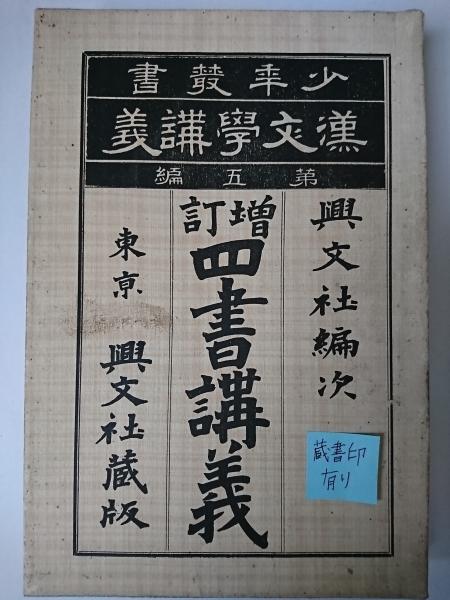 少年叢書
漢文學講義
第五編
興文社編次
増訂
四書講義
東京 興文社蔵版
蔵書印
有り